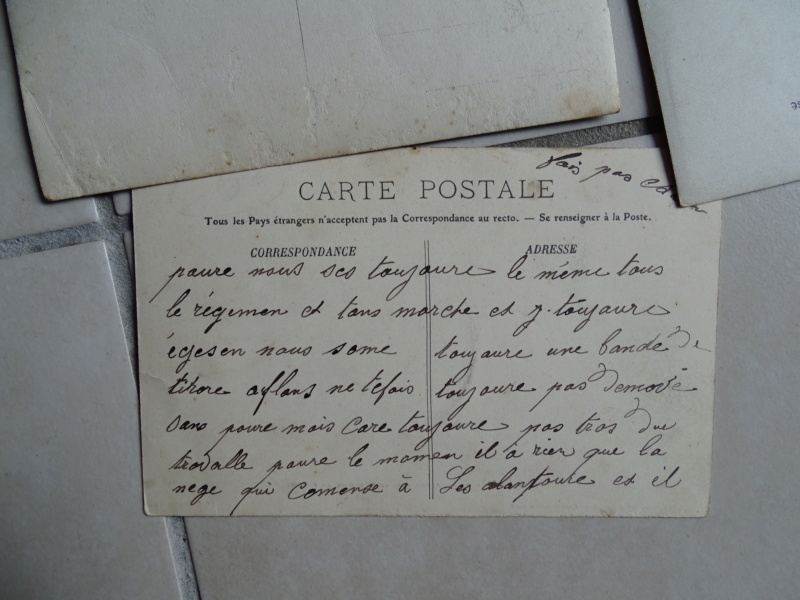 fais pas
CARTE POSTALE
Tous les Pays étrangers n'acceptent pas la Correspondance au recto. — Se renseigner à la Poste.
CORRESPONDANCE ADRESSE
paure nous ses toujoure le même tous
le régimen et tous marche et y toujoure
égesen nous some toujoure une bande de
tirore aflans ne tefois toujoure pas demové
dans poure mois care toujoure pas tros du
travalle paure le momen il a rier que la
nege qui comense à Les alantoure et il